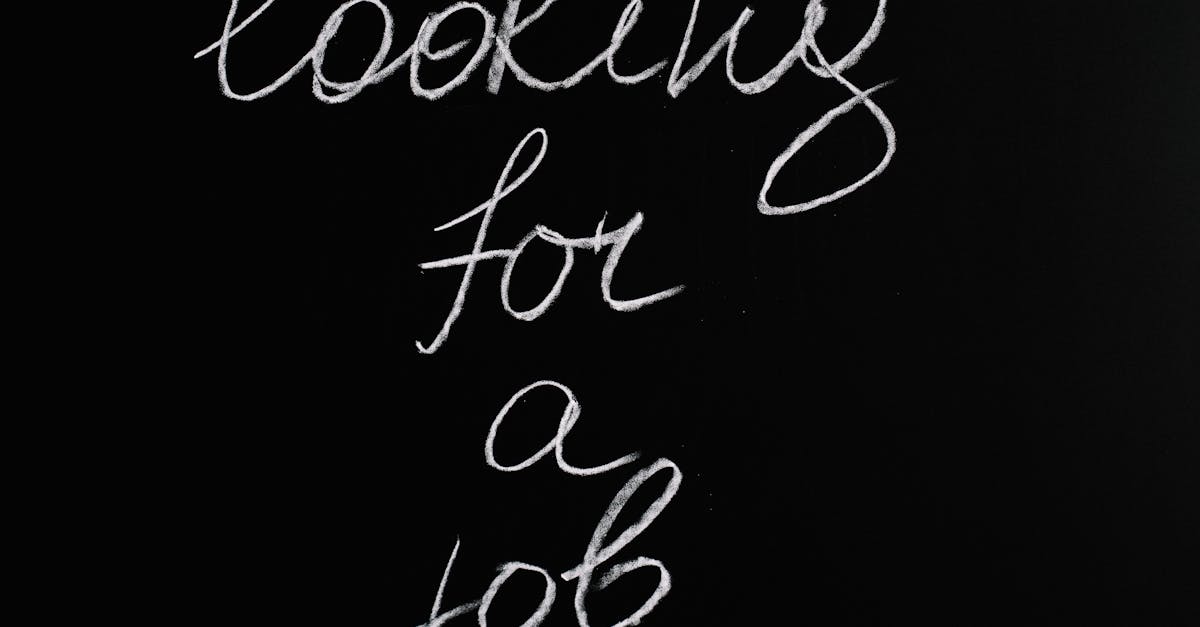 looking
for
a
job